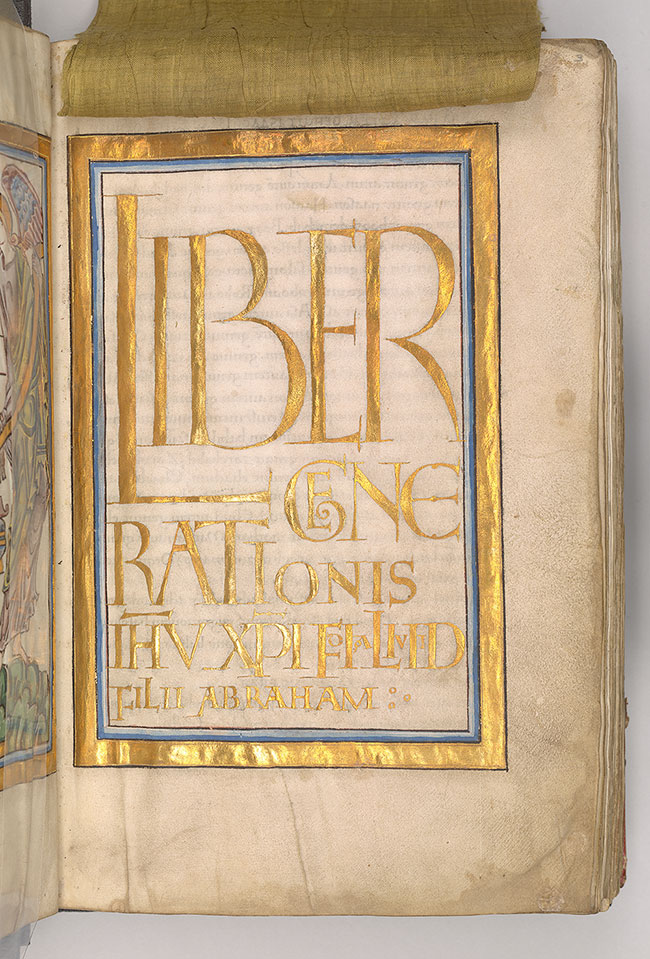 LIBER
GENE
RATIONIS
IHV XPI FILII DAVID
FILII ABRAHAM